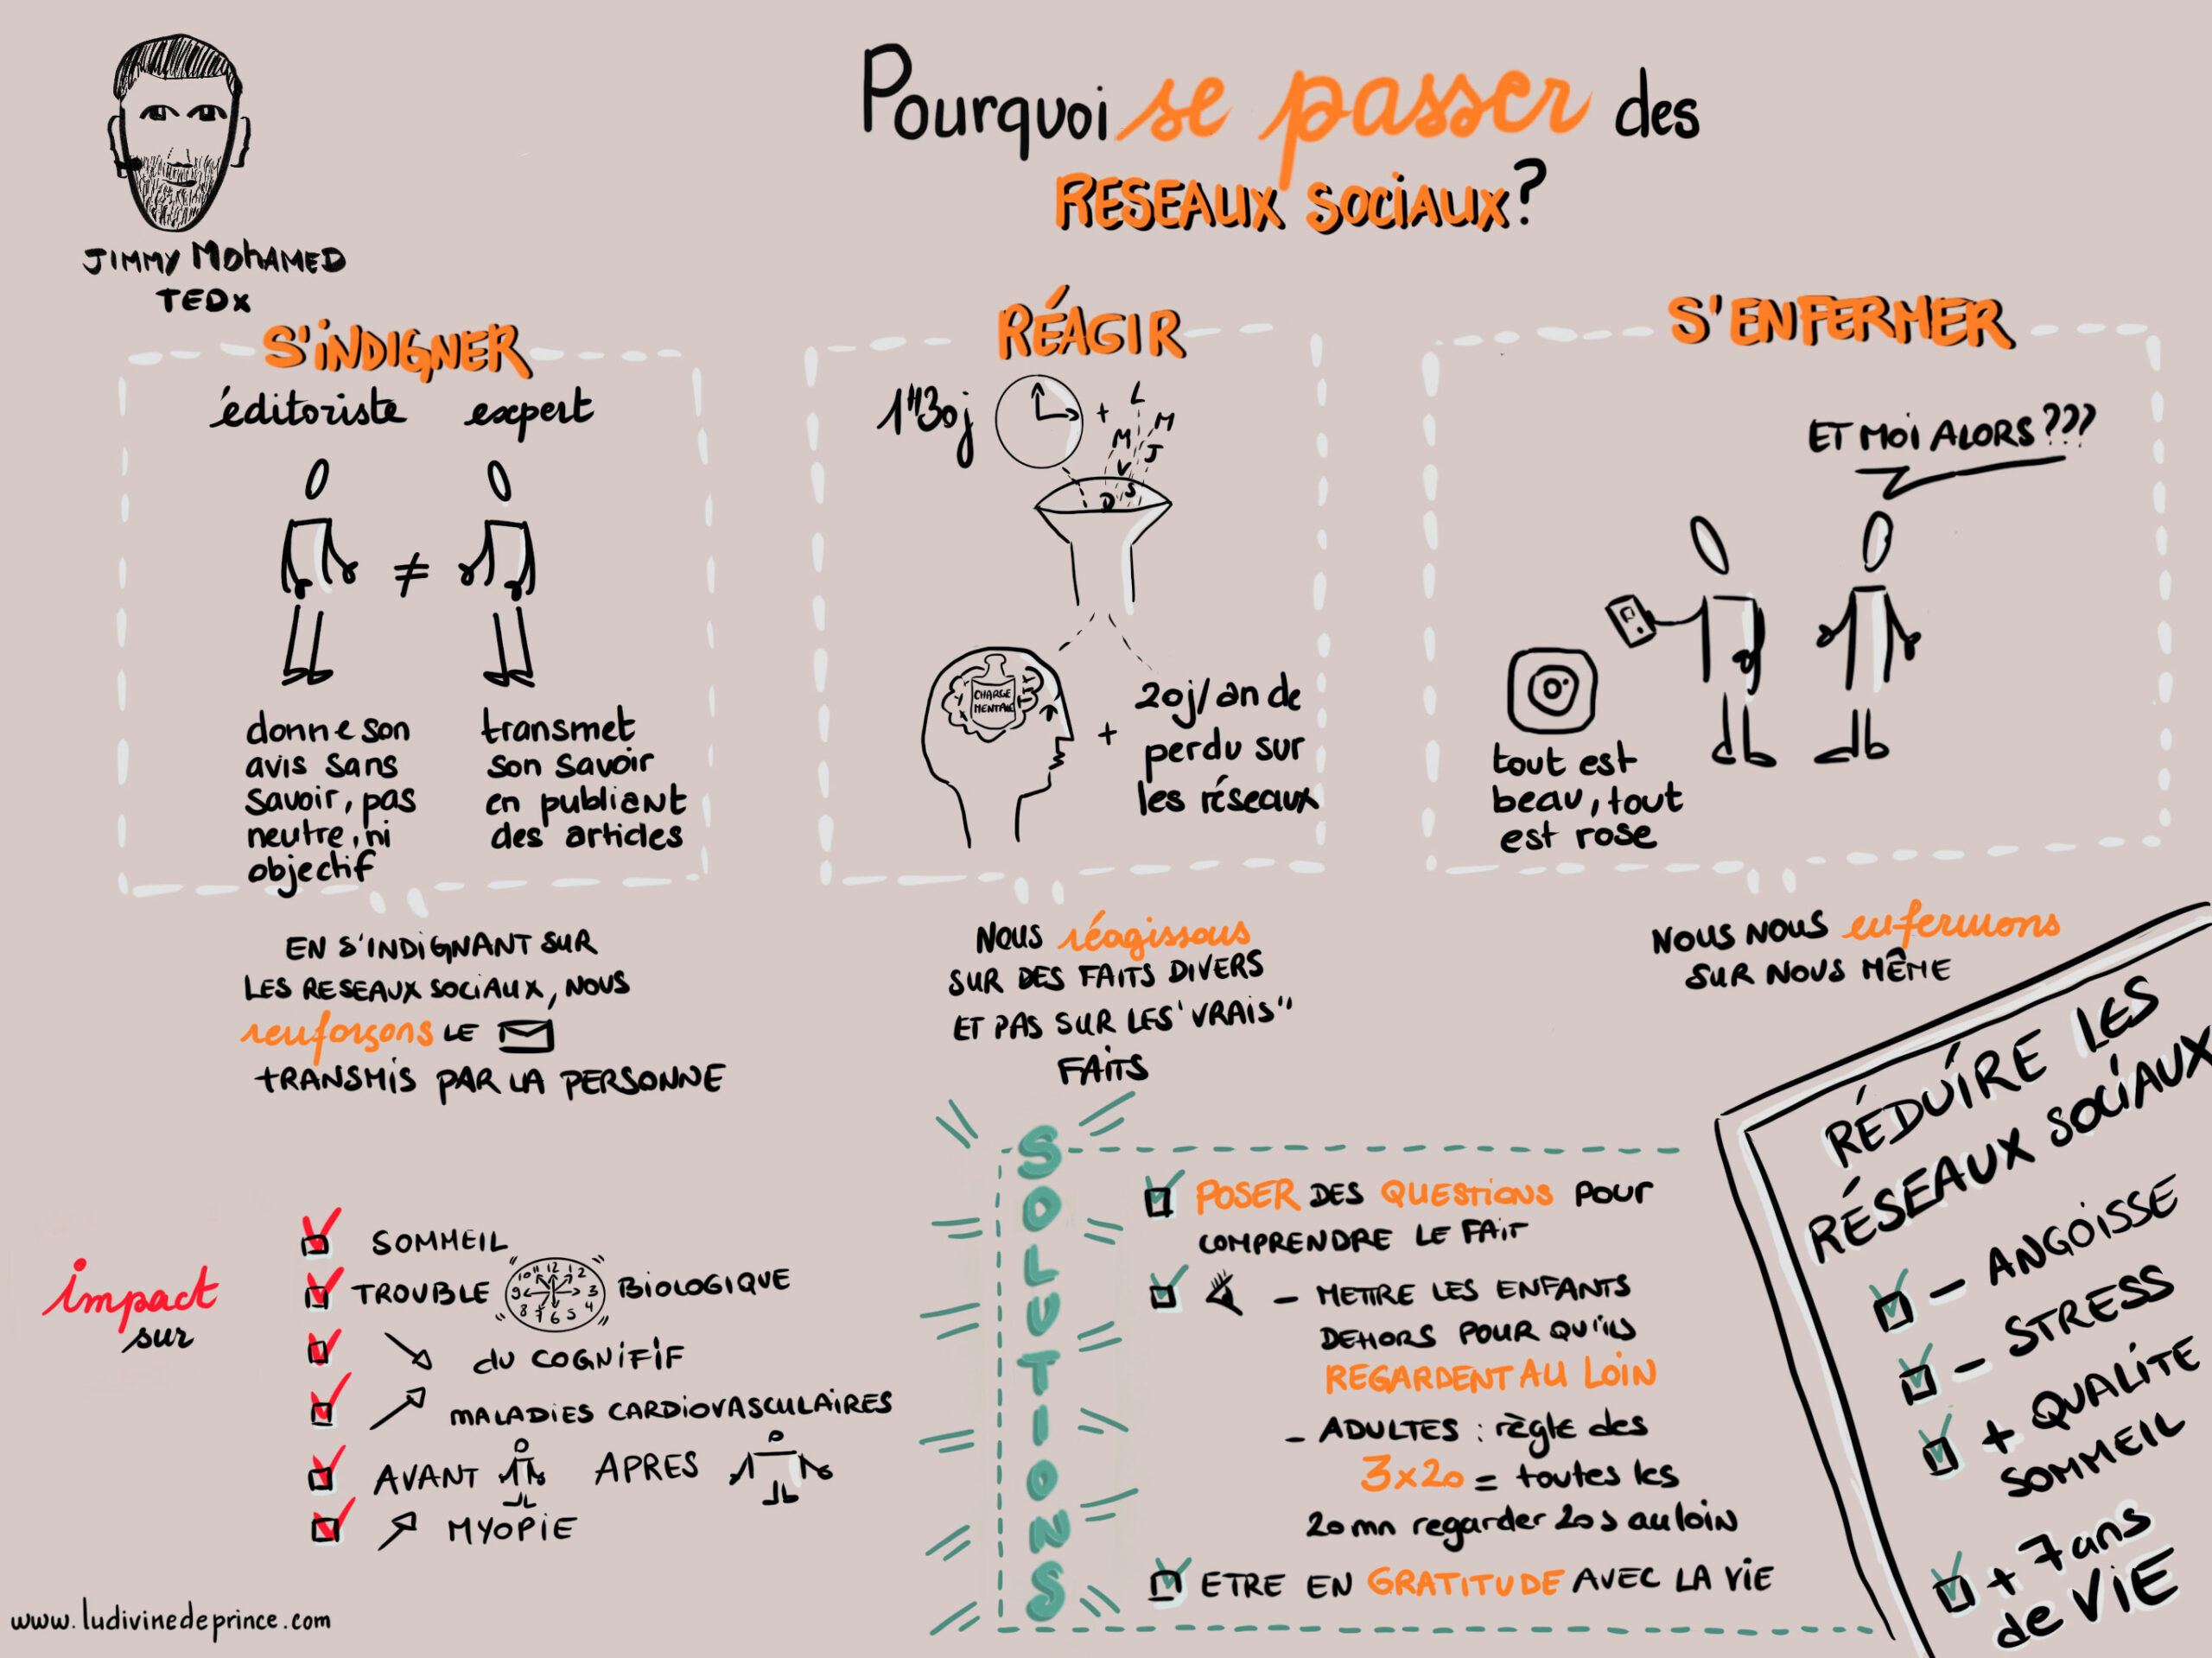 Pourquoi se passer des
RESEAUX SOCIAUX?
JIMMY MOHAMED
TEDx
S'INDIGNER
éditoriste expert
≠
donne son
avis sans
savoir, pas
neutre, ni
objectif
transmet
son savoir
en publiant
des articles
EN S'INDIGNANT SUR
LES RESEAUX SOCIAUX, NOUS
renforçons LE
TRANSMIS PAR LA PERSONNE
RÉAGIR
1H30j +
L
M
M
J
V
S
D
CHARGE
MENTALE
+
20j/an de
perdu sur
les réseaux
NOUS réagissons
SUR DES FAITS DIVERS
ET PAS SUR LES "VRAIS"
FAITS
S'ENFERMER
ET MOI ALORS ???
tout est
beau, tout
est rose
NOUS NOUS enfermons
SUR NOUS MÊME
impact
sur
SOMMEIL
TROUBLE 12 1 2 3 4 5 6 7 8 9 10 11 BIOLOGIQUE
du COGNIFIF
MALADIES CARDIOVASCULAIRES
AVANT APRES
MYOPIE
SOLUTIONS
POSER DES QUESTIONS POUR
COMPRENDRE LE FAIT
- METTRE LES ENFANTS
DEHORS POUR QU'ILS
REGARDENT AU LOIN
- ADULTES : règle des
3x20 = toutes les
20 mn regarder 20 s au loin
ETRE EN GRATITUDE AVEC LA VIE
RÉDUIRE LES
RÉSEAUX SOCIAUX
- ANGOISSE
- STRESS
+ QUALITE
SOMMEIL
+ 7 ans
de VIE
www.ludivinedeprince.com